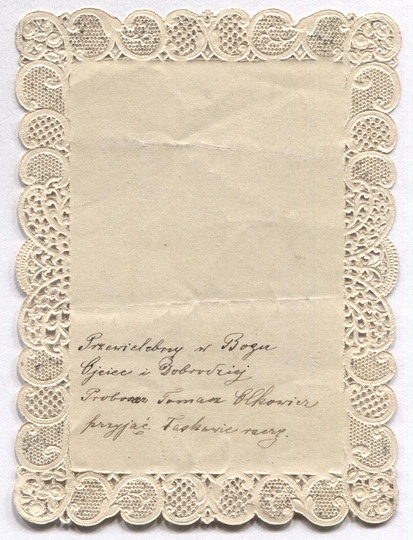 Przewielebny w Bogu
Ojciec i Dobrodziej
Proboszcz Tomasz Olkowicz
przyjąć Łaskawie raczy.